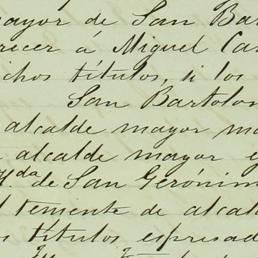 mayor de San Bar
recer á Miguel Can
ichos títulos, si los
San Bartolon
alcalde mayor ma
alcalde mayor e
da de San Gerónim
l teniente de alcald
os títulos espresad